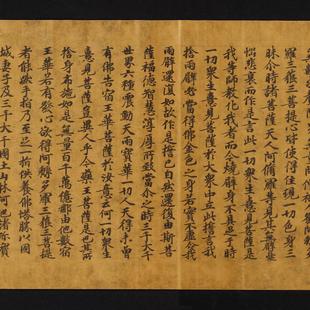 羅三藐三菩提心皆使得住現一切色身三
昧尒時諸菩薩天人阿脩羅等見其無臂憂
惱悲哀而作是言此一切眾生喜見菩薩是
我等師教化我者而今燒臂身不具足于時
一切眾生喜見菩薩於大眾中立此誓言我
捨兩臂必當得佛金色之身若實不虛令我
兩臂還復如故作是誓已自然還復由斯菩
薩福德智慧淳厚所致當尒之時三千大千
世界六種震動天雨寶華一切人天得未曾
有佛告宿王華菩薩於汝意云何一切眾生
喜見菩薩豈異人乎今藥王菩薩是也其所
捨身布施如是無量百千萬億那由他數宿
王華若有發心欲得阿耨多羅三藐三菩提
者能燃手指乃至足一指供養佛塔勝以國
城妻子及三千大千國土山林河池諸珍寶